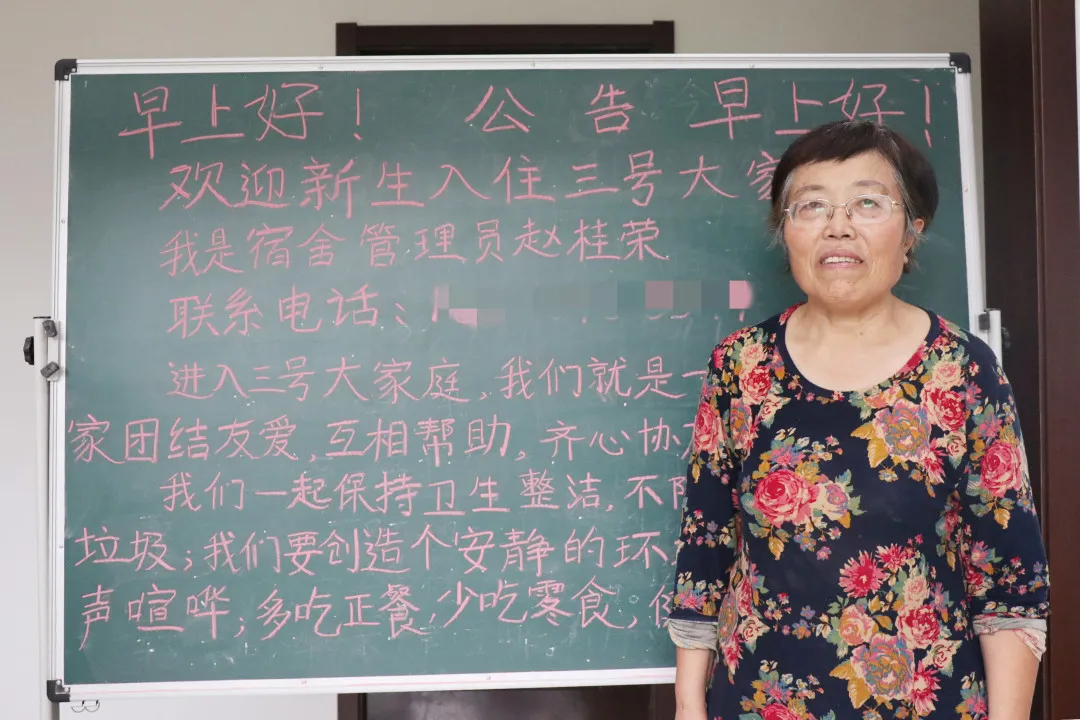 早上好! 公告 早上好!
欢迎新生入住三号大家
我是宿舍管理员赵桂荣
联系电话:
进入三号大家庭,我们就是一
家团结友爱,互相帮助,齐心协
我们一起保持卫生整洁,不
垃圾;我们要创造个安静的环
声喧哗;多吃正餐,少吃零食;